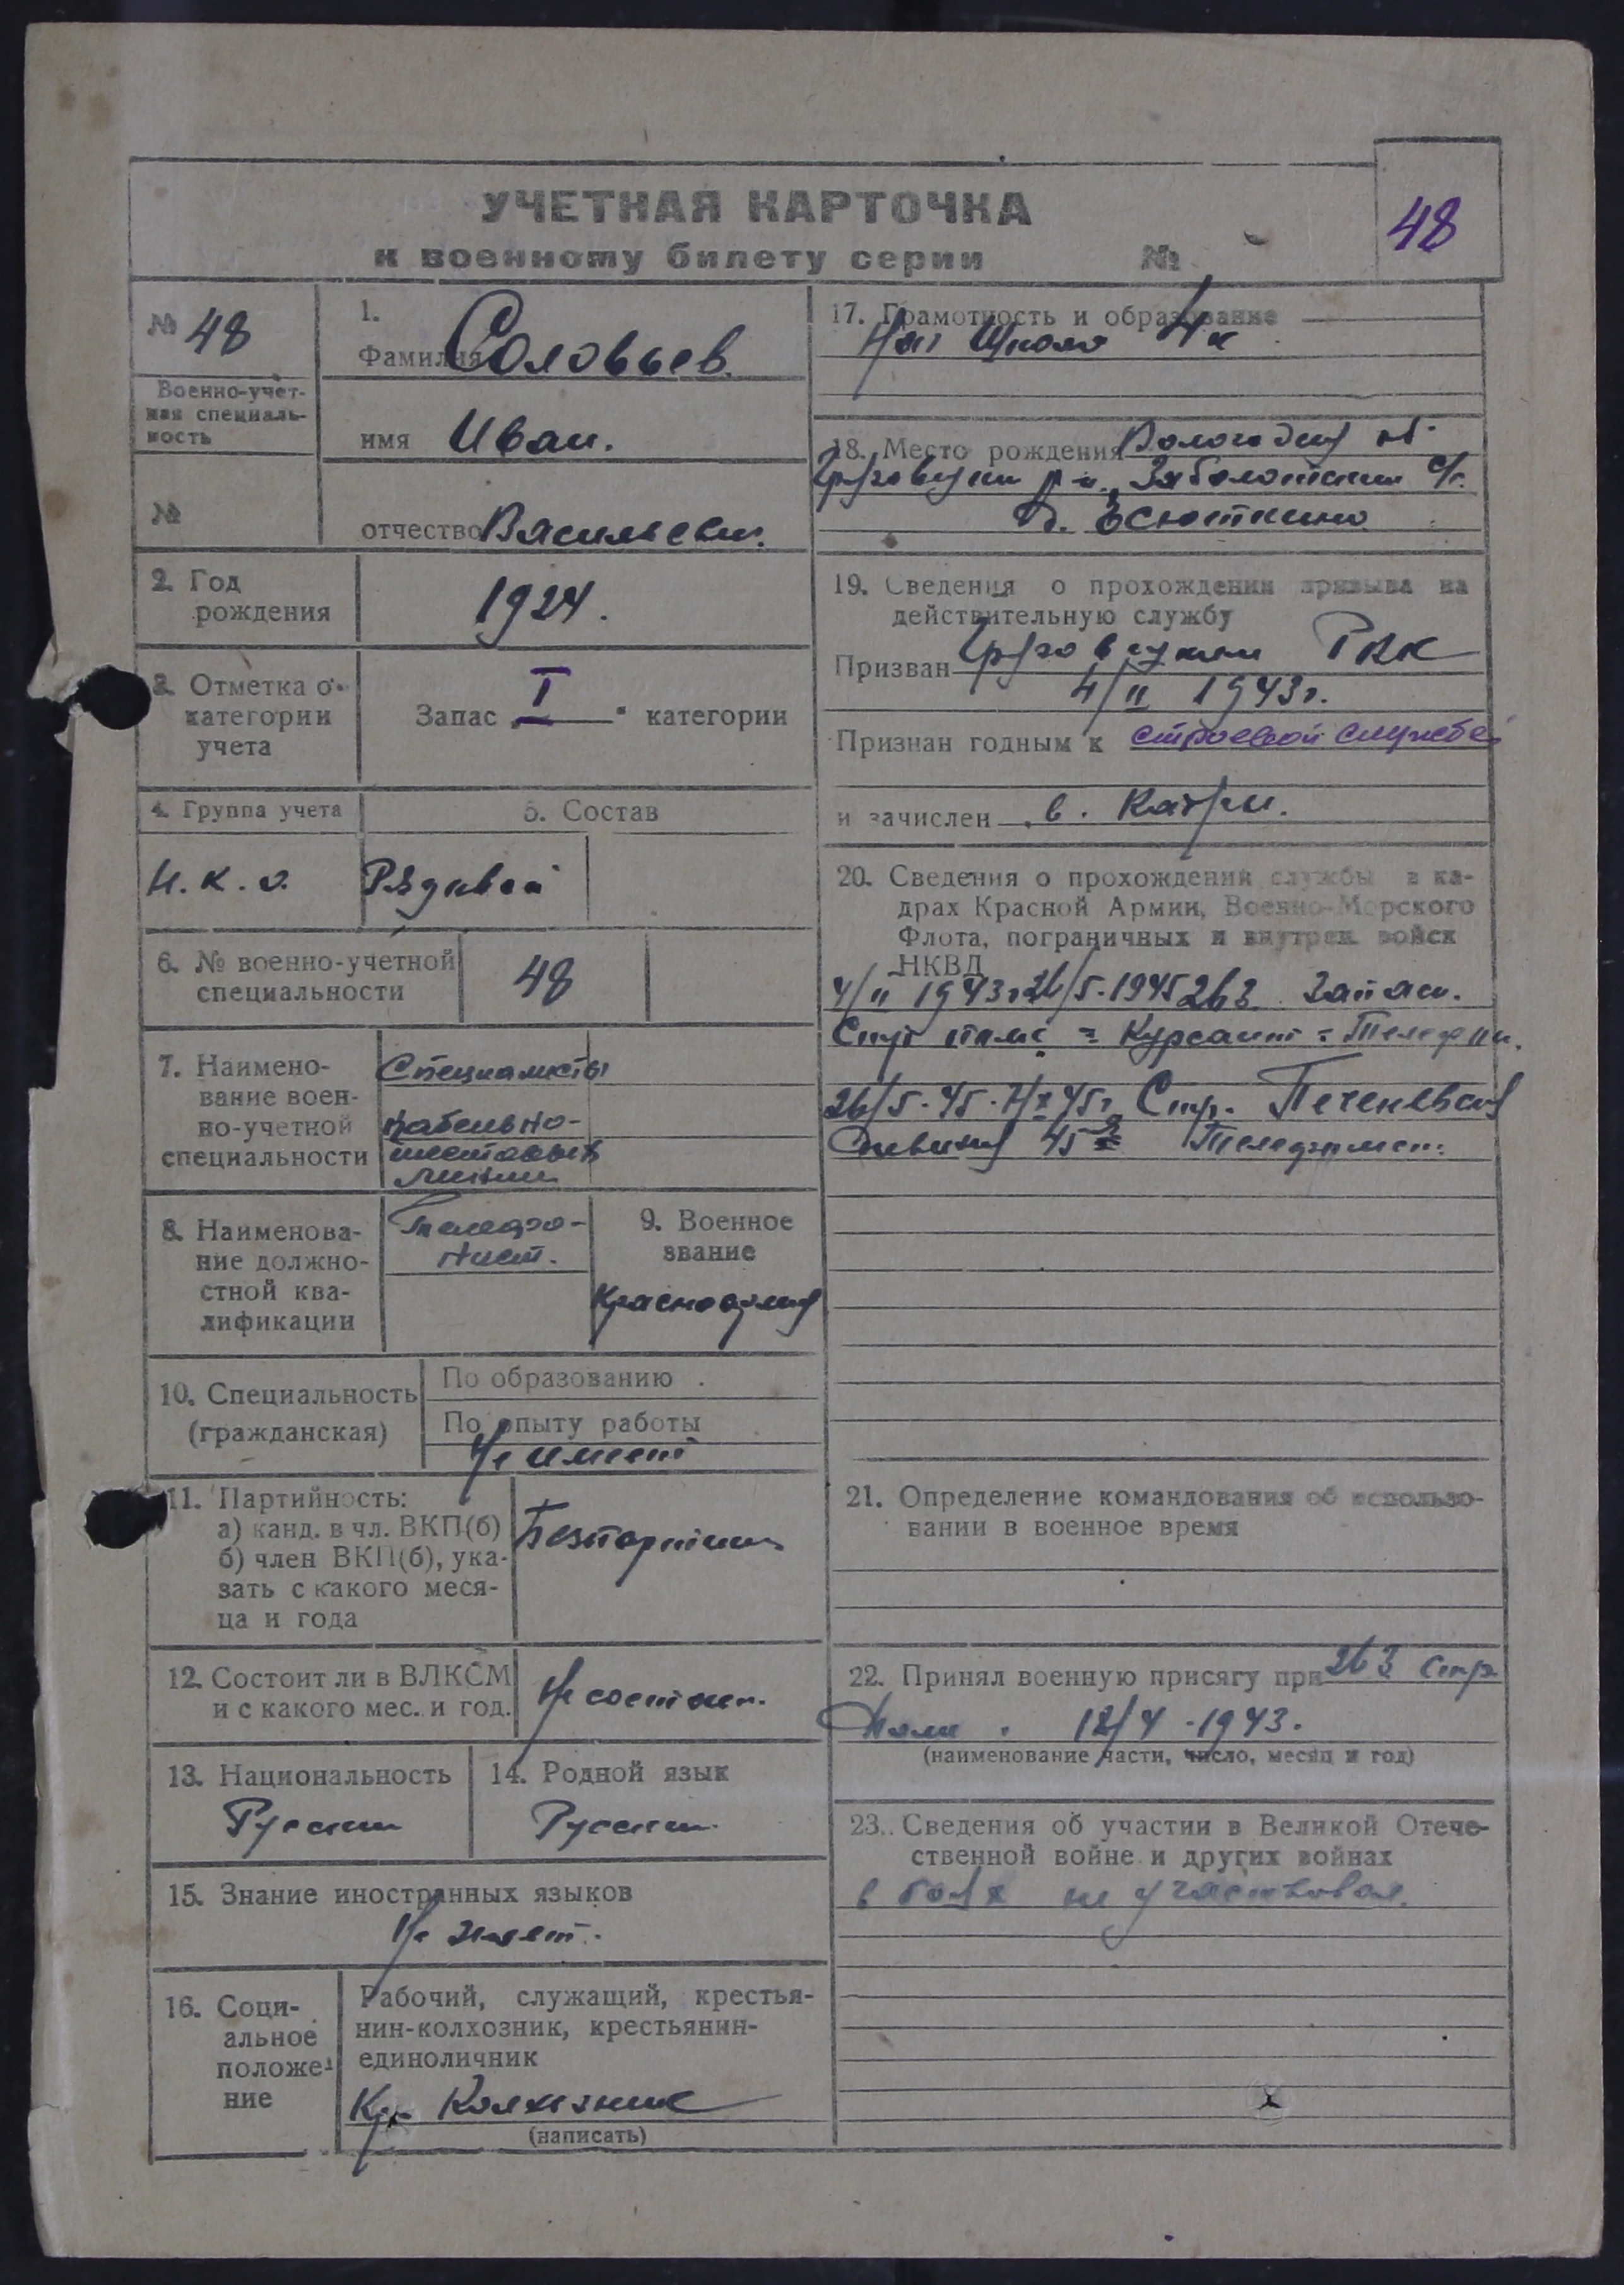 УЧЕТНАЯ КАРТОЧКА
к военному билету серии №
48
№ 48
Военно-учет-
ная специаль-
ность
№
1.
Фамилия Соловьев.
имя Иван.
отчество Васильевич.
2. Год
рождения
1924.
3. Отметка о
категории
учета
Запас I категории
4. Группа учета
Н.К.О.
5. Состав
Рядовой
6. № военно-учетной
специальности
48
7. Наимено-
вание воен-
но-учетной
специальности
Специалисты
кабельно-
шестовых
линии
8. Наименова-
ние должно-
стной ква-
лификации
Телефо-
нист.
9. Военное
звание
Красноармец
10. Специальность
(гражданская)
По образованию
По опыту работы
Не имеет
11. Партийность:
а) канд. в чл. ВКП(б)
б) член ВКП(б), ука-
зать с какого меся-
ца и года
Безпартийный
12. Состоит ли в ВЛКСМ
и с какого мес. и год.
Не состоит.
13. Национальность
Русский
14. Родной язык
Русский.
15. Знание иностранных языков
Не знает.
16. Соци-
альное
положе-
ние
Рабочий, служащий, крестья-
нин-колхозник, крестьянин-
единоличник
Кр. Колхозник
(написать)
17. Грамотность и образование
Нач Школа 4 к
18. Место рождения Вологодской об.
Грязовецкий р-н., Заболотский с/с.
д. Всюткино
19. Сведения о прохождении призыва на
действительную службу
Призван Грязовецким РВК
4/II 1943г.
Признан годным к строевой службе
и зачислен в. Кадры.
20. Сведения о прохождении службы в ка-
драх Красной Армии, Военно-Морского
Флота, пограничных и внутрен. войск
НКВД
4/II 1943г 26/5-1945 263 Запасн.
Стр полк = Курсант = Телефон.
26/5-45- Стр. Печеневской
дивизия 45 Телефонист.
21. Определение командования об использо-
вании в военное время
22. Принял военную присягу при 263 стр
полк. 12/4-1943.
(наименование части, число, месяц и год)
23. Сведения об участии в Великой Отече-
ственной войне и других войнах
в боях не участвовал.